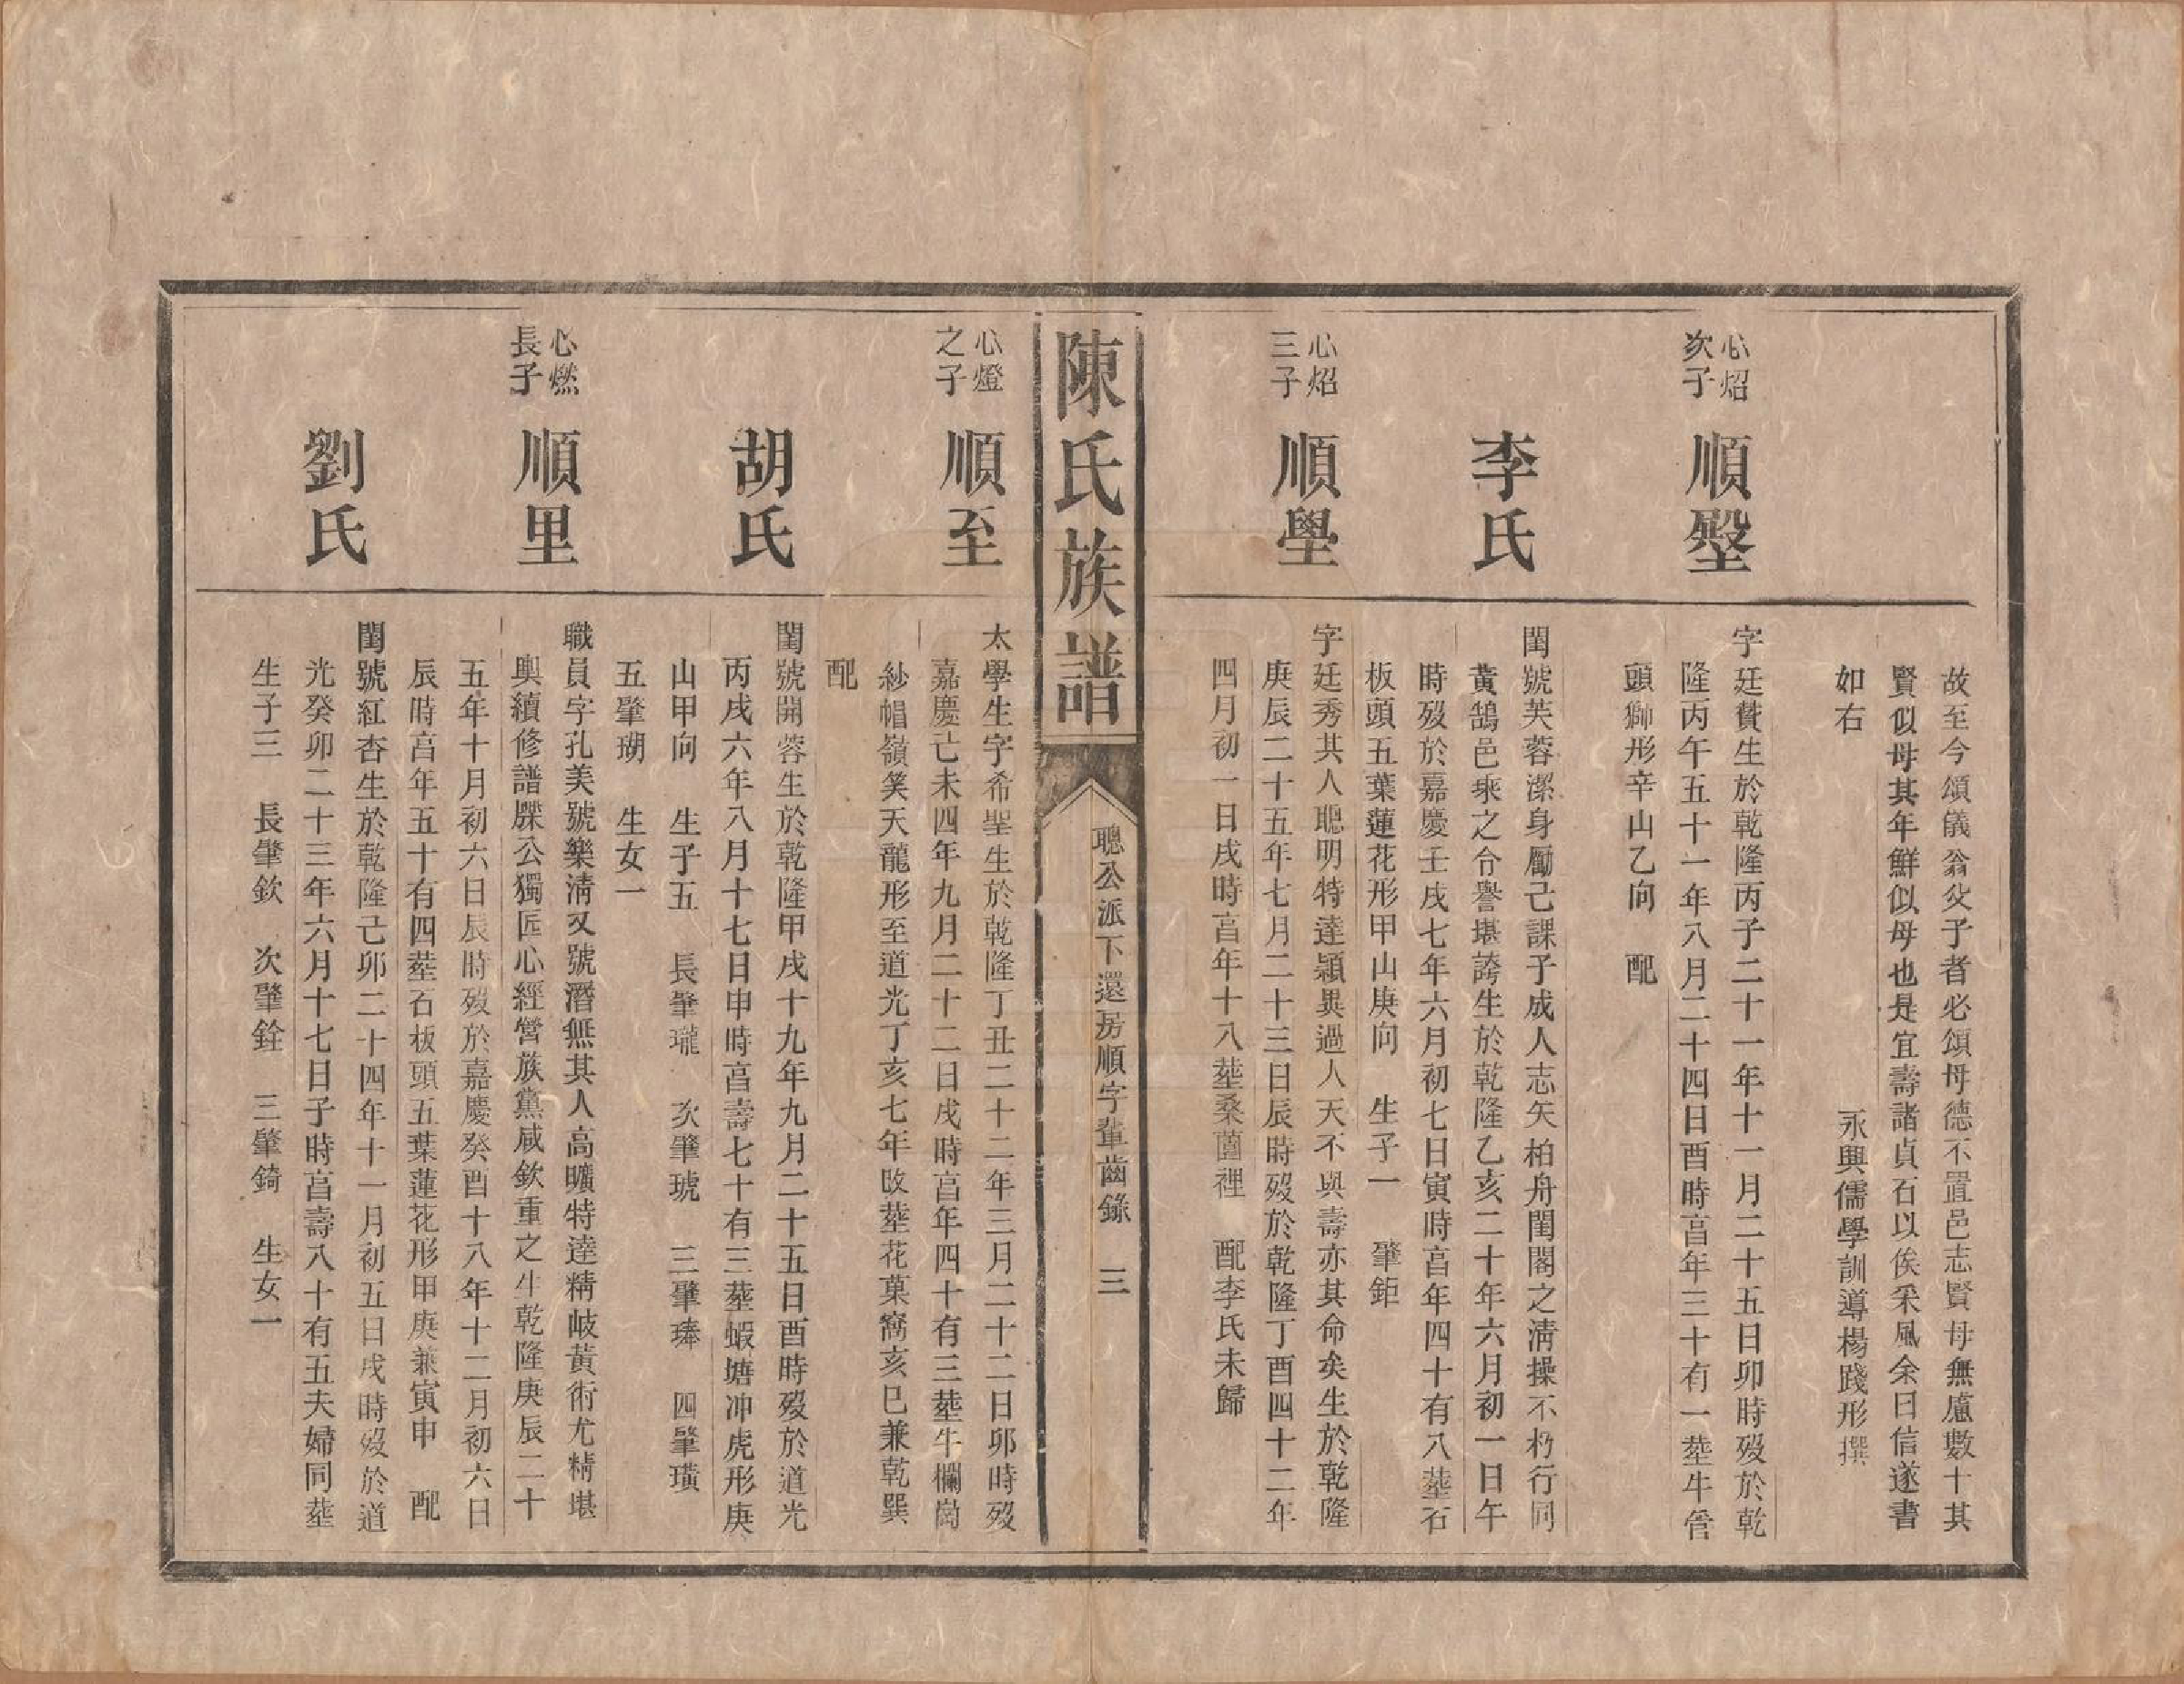 故至今頌儀翁父子者必頌母德不置邑志賢母無慮數十其
賢似母其年鮮似母也是宜壽諸貞石以俟采風余曰信遂書
如右
永興儒學訓導楊踐形撰
心炤
次子
順壂
字廷贊生於乾隆丙子二十一年十一月二十五日卯時歿於乾
隆丙午五十一年八月二十四日酉時亯年三十有一塟牛管
頭獅形辛山乙向 配
李氏
閨號芙蓉潔身勵己課子成人志矢柏舟閨閣之淸操不朽行同
黃鵠邑乘之令譽堪誇生於乾隆乙亥二十年六月初一日午
時歿於嘉慶壬戌七年六月初七日寅時亯年四十有八塟石
板頭五葉蓮花形甲山庚向 生子一 肇鉅
心炤
三子
順壆
字廷秀其人聰明特達穎異過人天不與壽亦其命矣生於乾隆
庚辰二十五年七月二十三日辰時歿於乾隆丁酉四十二年
四月初一日戌時亯年十八塟桑薗裡 配李氏未歸
陳氏族譜
聰公派下還房順字輩齒錄 三
心燈
之子
順至
太學生字希聖生於乾隆丁丑二十二年三月二十二日卯時歿
嘉慶己未四年九月二十二日戌時亯年四十有三塟牛欄崗
紗帽嶺笑天龍形至道光丁亥七年改塟花菓窩亥巳兼乾巽
配
胡氏
閨號開蓉生於乾隆甲戌十九年九月二十五日酉時歿於道光
丙戌六年八月十七日申時亯壽七十有三塟蝦塘冲虎形庚
山甲向 生子五 長肇瓏 次肇琥 三肇琫 四肇璜
五肇瑚 生女一
心燃
長子
順里
職員字孔美號樂淸又號潛無其人高曠特逹精岐黃術尤精堪
輿續修譜牒公獨匠心經營族黨咸欽重之生乾隆庚辰二十
五年十月初六日辰時歿於嘉慶癸酉十八年十二月初六日
辰時亯年五十有四塟石板頭五葉蓮花形甲庚兼寅申 配
劉氏
閨號紅杏生於乾隆己卯二十四年十一月初五日戌時歿於道
光癸卯二十三年六月十七日子時亯壽八十有五夫婦同塟
生子三 長肇欽 次肇銓 三肇錡 生女一